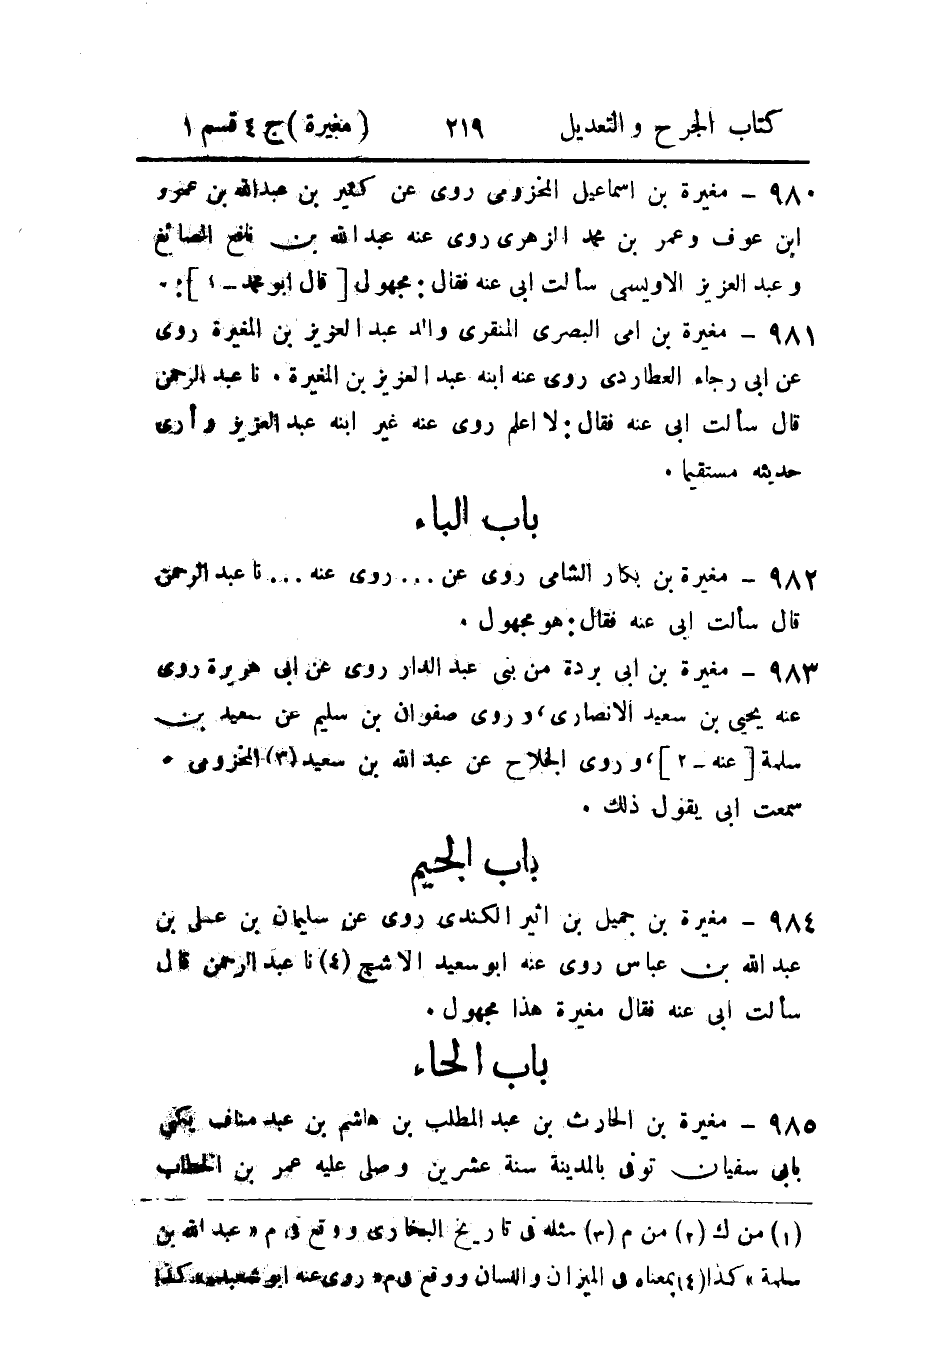 كتاب الجرح والتعديل ٢١٩ (مغيرة) ج ٤ قسم ١
٩٨٠ - مغيرة بن اسماعيل المخزومى روى عن كثير بن عبدالله بن عمرو
ابن عوف وعمر بن محمد الزهرى روى عنه عبدالله بن نافع الصائغ
وعبد العزيز الاويسى سألت ابى عنه فقال: مجهول [ قال ابو محمد - ١ ]: ٠
٩٨١ - مغيرة بن امى البصرى المنقرى والد عبد العزيز بن المغيرة روى
عن ابى رجاء العطاردى روى عنه ابنه عبد العزيز بن المغيرة ٠ نا عبد الرحمن
قال سألت ابى عنه فقال: لا اعلم روى عنه غير ابنه عبد العزيز وأرى
حديثه مستقيما ٠
باب الباء
٩٨٢ - مغيرة بن بكار الشامى روى عن ... روى عنه ... نا عبد الرحمن
قال سألت ابى عنه فقال: هو مجهول ٠
٩٨٣ - مغيرة بن ابى بردة من بنى عبد الدار روى عن ابى هريرة روى
عنه يحيى بن سعيد الانصارى، وروى صفوان بن سليم عن سعيد بن
سلمة [ عنه - ٢ ]، وروى الجلاح عن عبد الله بن سعيد (٣) المخزومى ٠
سمعت ابى يقول ذلك ٠
باب الجيم
٩٨٤ - مغيرة بن جميل بن اثير الكندى روى عن سليمان بن على بن
عبد الله بن عباس روى عنه ابو سعيد الاشج (٤) نا عبد الرحمن قال
سألت ابى عنه فقال مغيرة هذا مجهول ٠
باب الحاء
٩٨٥ - مغيرة بن الحارث بن عبد المطلب بن هاشم بن عبد مناف يكنى
بابى سفيان توفى بالمدينة سنة عشرين وصلى عليه عمر بن الخطاب
(١) من ك (٢) من م (٣) مثله فى تاريخ البخارى ووقع فى م «عبد الله بن
سلمة» كذا (٤) بمعناه فى الميزان واللسان ووقع فى م «روى عنه ابو شعيب» كذا